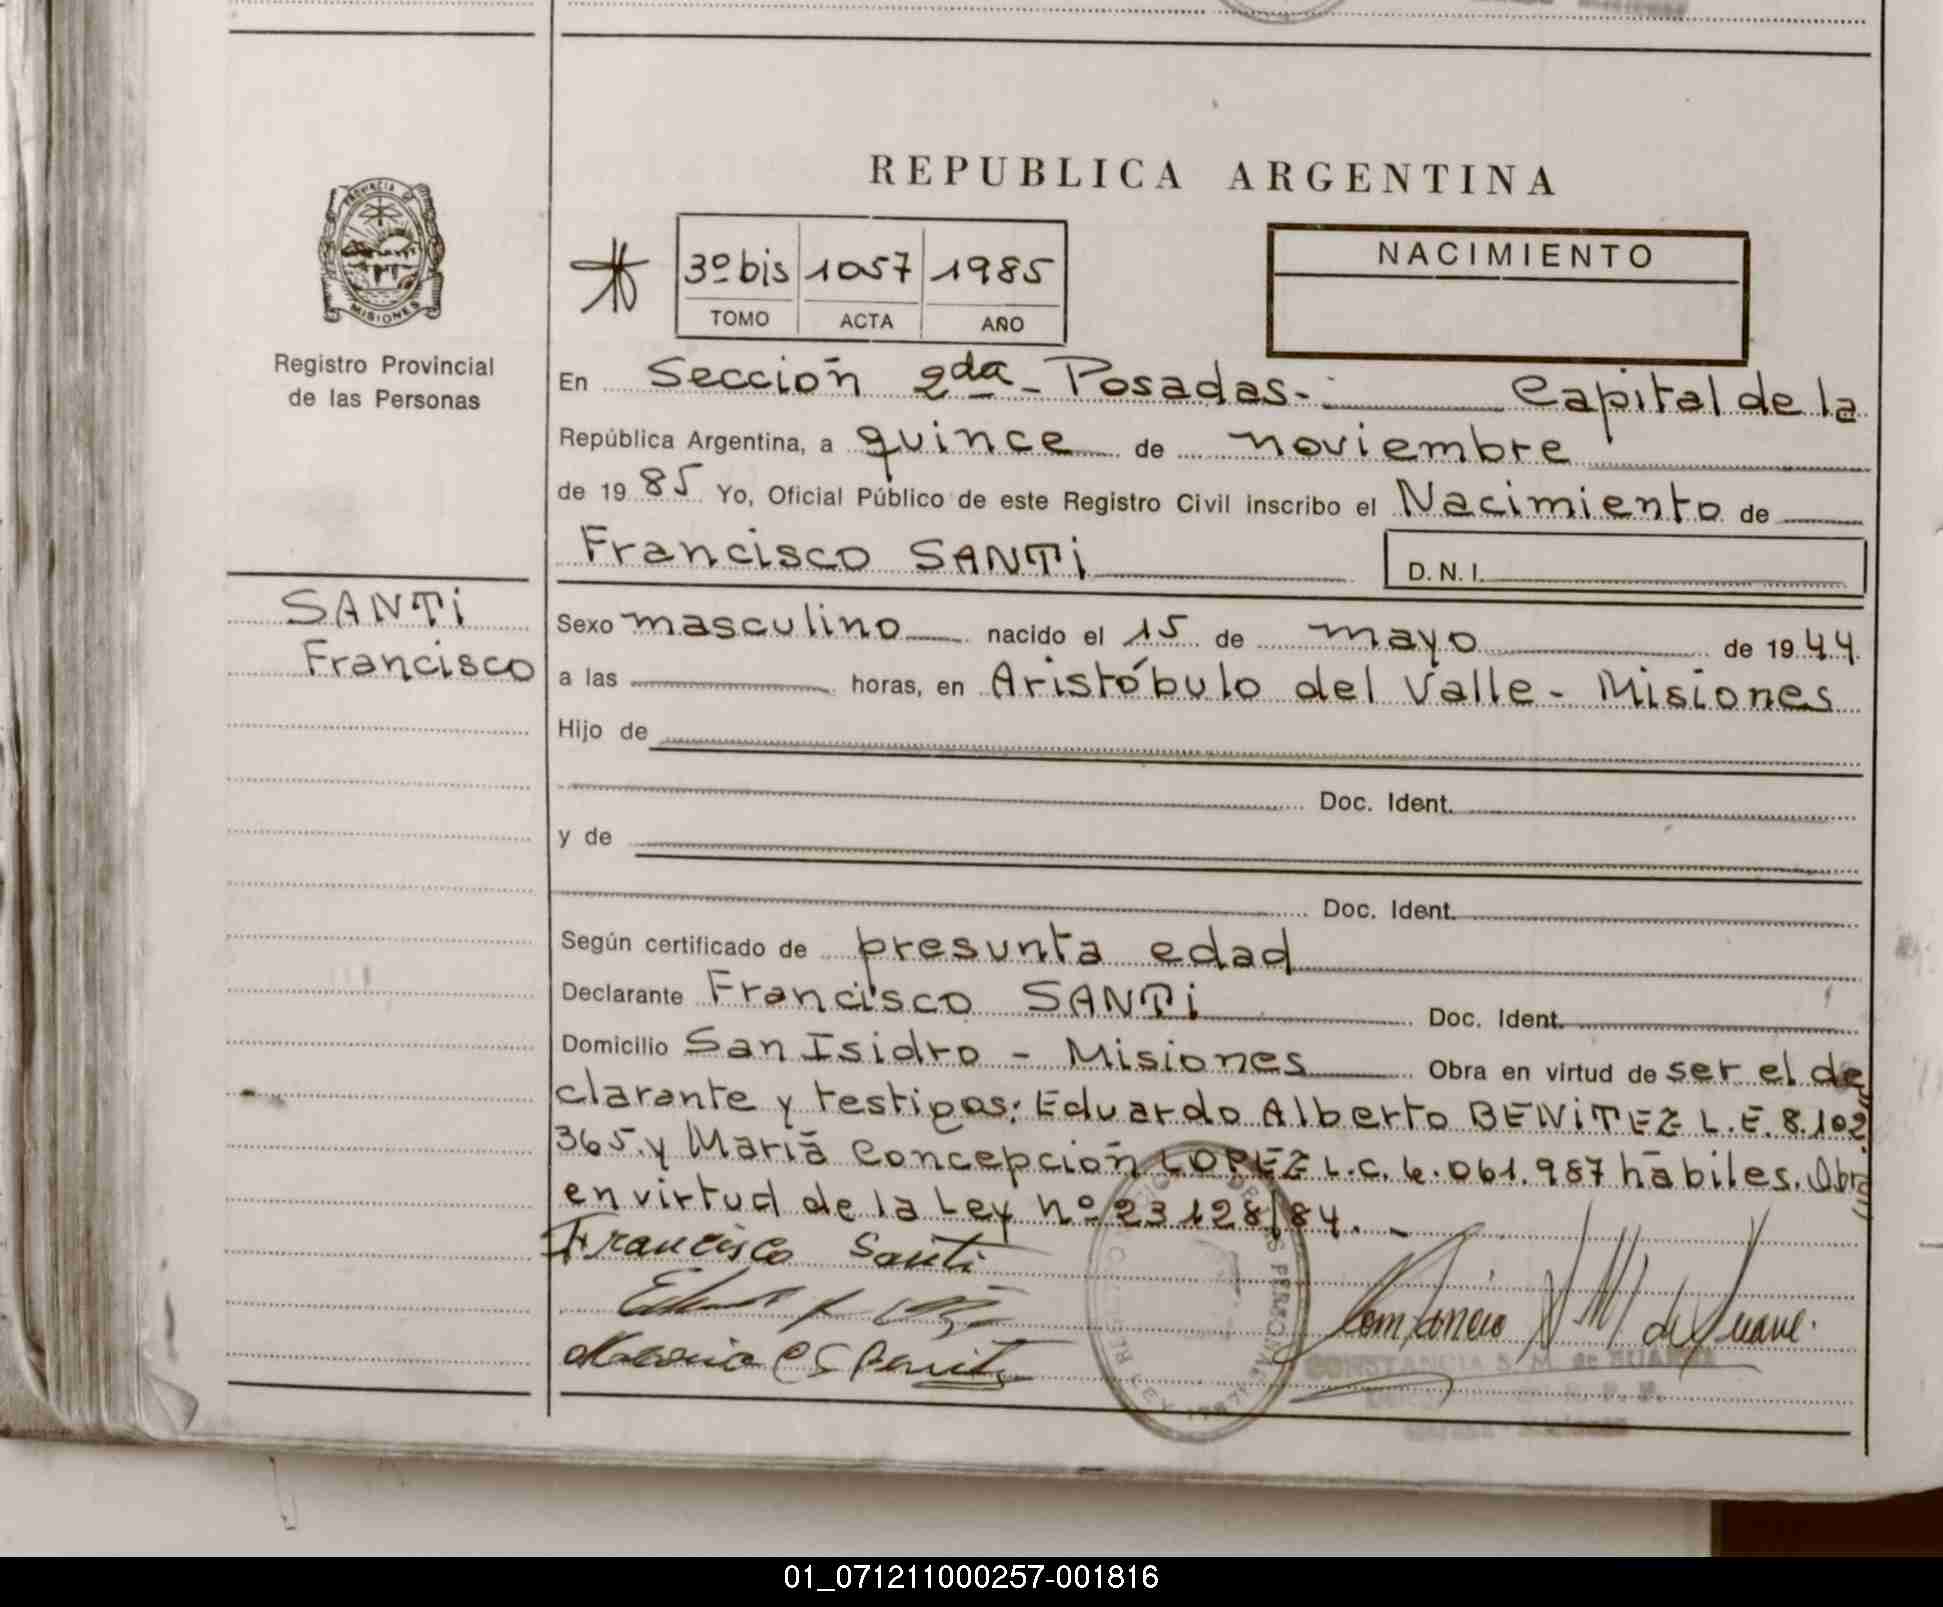 REPUBLICA ARGENTINA
PROVINCIA DE
MISIONES
Registro Provincial
de las Personas
3º bis 1057 1985
TOMO ACTA AÑO
NACIMIENTO
En Sección 2da - Posadas - Capital de la
República Argentina, a quince de noviembre
de 1985 Yo, Oficial Público de este Registro Civil inscribo el Nacimiento de
Francisco SANTi
D.N.I.
SANTi
Francisco
Sexo masculino nacido el 15 de mayo de 1944
a las horas, en Aristóbulo del Valle - Misiones
Hijo de
Doc. Ident.
y de
Doc. Ident.
Según certificado de presunta edad
Declarante Francisco SANTi Doc. Ident.
Domicilio San Isidro - Misiones Obra en virtud de ser el de
clarante y testigos: Eduardo Alberto BENiTEZ L.E. 8.102
365. y Mariā Concepción LOPEZ L.C. 6.061.987 hábiles. Obra
en virtud de la Ley nº 23128/84. -
Francisco Santi
CONSTANCIA S. M. de
01_071211000257-001816